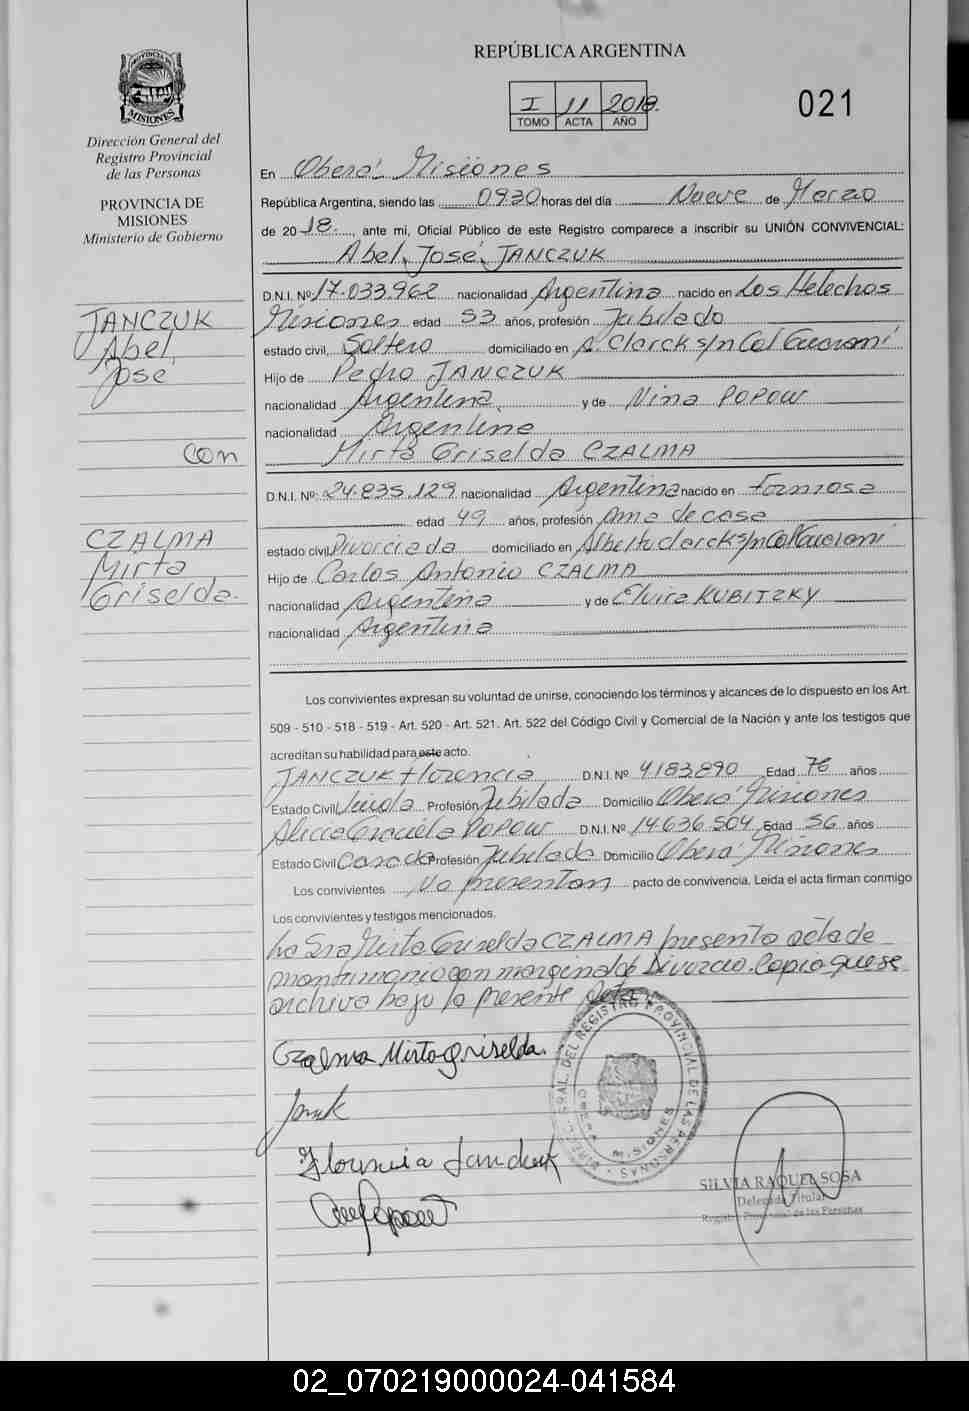 REPÚBLICA ARGENTINA
I 11 2018.
TOMO ACTA AÑO
021
PROVINCIA DE MISIONES
Dirección General del
Registro Provincial
de las Personas
PROVINCIA DE
MISIONES
Ministerio de Gobierno
JANCZUK
Abel
José
con
CZALMA
Mirta
Griselda.
En Oberá Misiones
República Argentina, siendo las 0930 horas del día Nueve de Marzo
de 2018., ante mi, Oficial Público de este Registro comparece a inscribir su UNIÓN CONVIVENCIAL:
Abel José JANCZUK
D.N.I. Nº 17.033.962 nacionalidad Argentina nacido en Los Helechos
Misiones edad 53 años, profesión Jubilado
estado civil, Soltero domiciliado en A. Clarck s/n Col Guaraní
Hijo de Pedro JANCZUK
nacionalidad Argentina y de Nina POPOW
nacionalidad Argentina
Mirta Griselda CZALMA
D.N.I. Nº: 24.835.129 nacionalidad Argentina nacido en Formosa
edad 49 años, profesión Ama de casa
estado civil Divorciada domiciliado en Alberto Clarck s/n Col Guaraní
Hijo de Carlos Antonio CZALMA
nacionalidad Argentina y de Elvira KUBITZKY
nacionalidad Argentina
Los convivientes expresan su voluntad de unirse, conociendo los términos y alcances de lo dispuesto en los Art.
509 - 510 - 518 - 519 - Art. 520 - Art. 521. Art. 522 del Código Civil y Comercial de la Nación y ante los testigos que
acreditan su habilidad para este acto.
JANCZUK Florencia D.N.I. Nº 4183890 Edad 76 años
Estado Civil Viuda Profesión Jubilada Domicilio Oberá Misiones
Alicia Graciela POPOW D.N.I. Nº 14.636.504 Edad 56 años
Estado Civil Casada Profesión Jubilada Domicilio Oberá Misiones
Los convivientes No presentan pacto de convivencia. Leída el acta firman conmigo
Los convivientes y testigos mencionados.
La Sra Mirta Griselda CZALMA presento acta de
matrimonio con marginal de Divorcio. Copia que se
archiva bajo la presente Acta
Czalma Mirta Griselda.
Florencia Janczuk
DIREC. GRAL. DEL REGISTRO PROVINCIAL DE LAS PERSONAS
MISIONES
SILVIA RAQUEL SOSA
Delegada Titular
Registro Provincial de las Personas
02_070219000024-041584